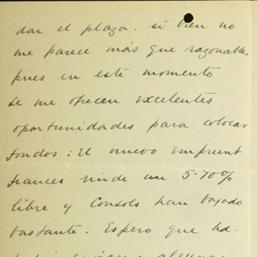 dar el plazo. si bien no
me parece más que razonable,
pues en este momento
se me ofrecen excelentes
oportunidades para colocar
fondos: El nuevo emprunt
frances rinde un 5.70%
libre y Consols han bajado
bastante. Espero que Ud.